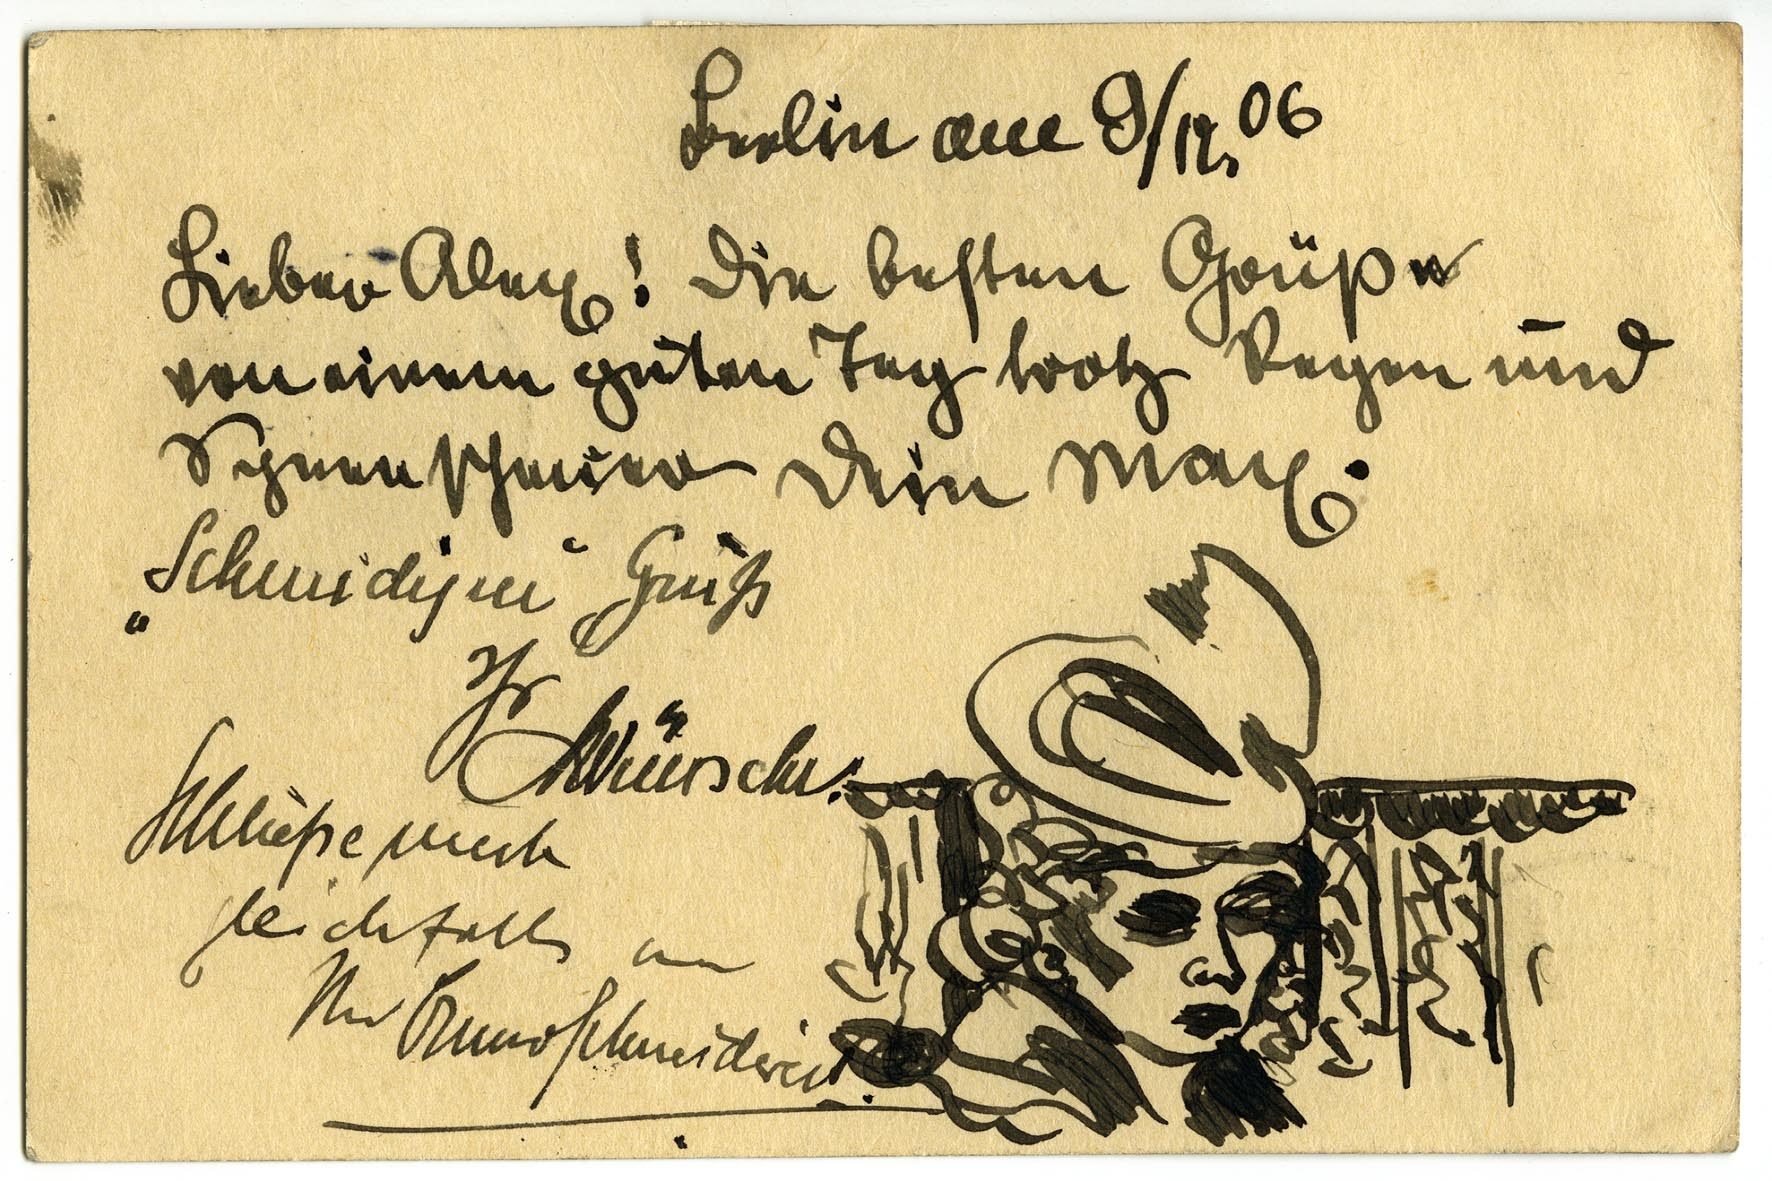 Berlin am 9/12. 06
Lieber Alex! Die besten Grüße
von einem guten Tag trotz Regen und
Schneeschauer Dein Max.
„Schneidigen“ Gruß
Ihr
Wünsche.
Schließe mich
gleichfalls an
Ihr Bruno Schneidereit.